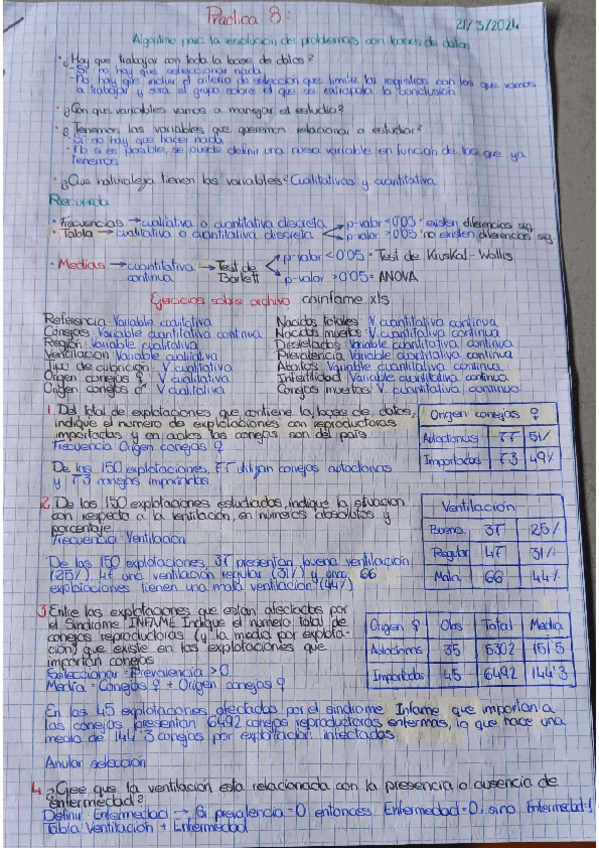 Práctica 8:
21/3/2024
Algoritmo para la resolución de problemas con bases de datos
· ¿Hay que trabajar con toda la base de datos?
- Sí no hay que seleccionar nada
- No hay que incluir el criterio de selección que limite los registros con los que vamos
a trabajar y será el grupo sobre el que se extrapola la conclusión
· ¿Con que variables vamos a manejar el estudio?
· ¿Tenemos las variables que queremos relacionar o estudiar?
- Sí no hay que hacer nada
- No si es posible, se puede definir una nueva variable en función de las que ya
tenemos
· ¿Que naturaleza tienen las variables? Cualitativas y cuantitativa
Recuerda
· Frecuencias → cualitativa o cuantitativa discreta
· Tabla → cualitativa o cuantitativa discreta
p-valor <0'05: existen diferencias sig
p-valor >0'05 no existen diferencias sig
· Medias → cuantitativa continua → Test de Barlett
p-valor <0'05 = Test de Kruskal-Wallis
p-valor >0'05 = ANOVA
Ejercicios sobre archivo coninfame.xls
Referencia: Variable cualitativa
Conejas: Variable cuantitativa continua
Región: Variable cualitativa
Ventilación Variable cualitativa
Tipo de cubrición: V cualitativa
Origen conejas ♀: V cualitativa
Origen conejos ♂: V cualitativa
Nacidos totales: V cuantitativa continua
Nacidos muertos: V cuantitativa continua
Destetados: Variable cuantitativa continua
Prevalencia: Variable cuantitativa continua
Abortos: Variable cuantitativa continua
Infertilidad: Variable cuantitativa continua
Conejos muertos: V cuantitativa continua
1. Del total de explotaciones que contiene la base de datos,
indique el numero de explotaciones con reproductoras
importadas y en cuales las conejas son del país
Frecuencia Origen conejas ♀
De las 150 explotaciones, 77 utilizan conejas autóctonas
y 73 conejas importadas
Origen conejas ♀
Autoctonas 77 51%
Importadas 73 49%
2. De las 150 explotaciones estudiadas, indique la situación
con respecto a la ventilación, en números absolutos y
porcentaje
Frecuencia Ventilación
De las 150 explotaciones, 37 presentan buena ventilación
(25%) 47 una ventilación regular (31%) y 66
explotaciones tienen una mala ventilación (44%)
Ventilación
Buena 37 25%
Regular 47 31%
Mala 66 44%
3. Entre las explotaciones que estan afectadas por
el Síndrome INFAME Indique el numero total de
conejas reproductoras (y la media por explota-
ción) que existe en las explotaciones que
importan conejas
Seleccionar = Prevalencia >0
Media = Conejas ♀ + Origen conejas ♀
Origen ♀ Obs Total Media
Autoctonas 35 5302 151'5
Importadas 45 6492 144'3
En las 45 explotaciones afectadas por el síndrome Infame que importan a
las conejas presentan 6492 conejas reproductoras enfermas, lo que hace una
media de 144'3 conejas por explotación infectadas
Anular selección
4. ¿Cree que la ventilación esta relacionada con la presencia o ausencia de
enfermedad?
Definir Enfermedad → Si prevalencia = 0 entonces Enfermedad = 0; sino Enfermedad = 1
Tabla: Ventilación + Enfermedad